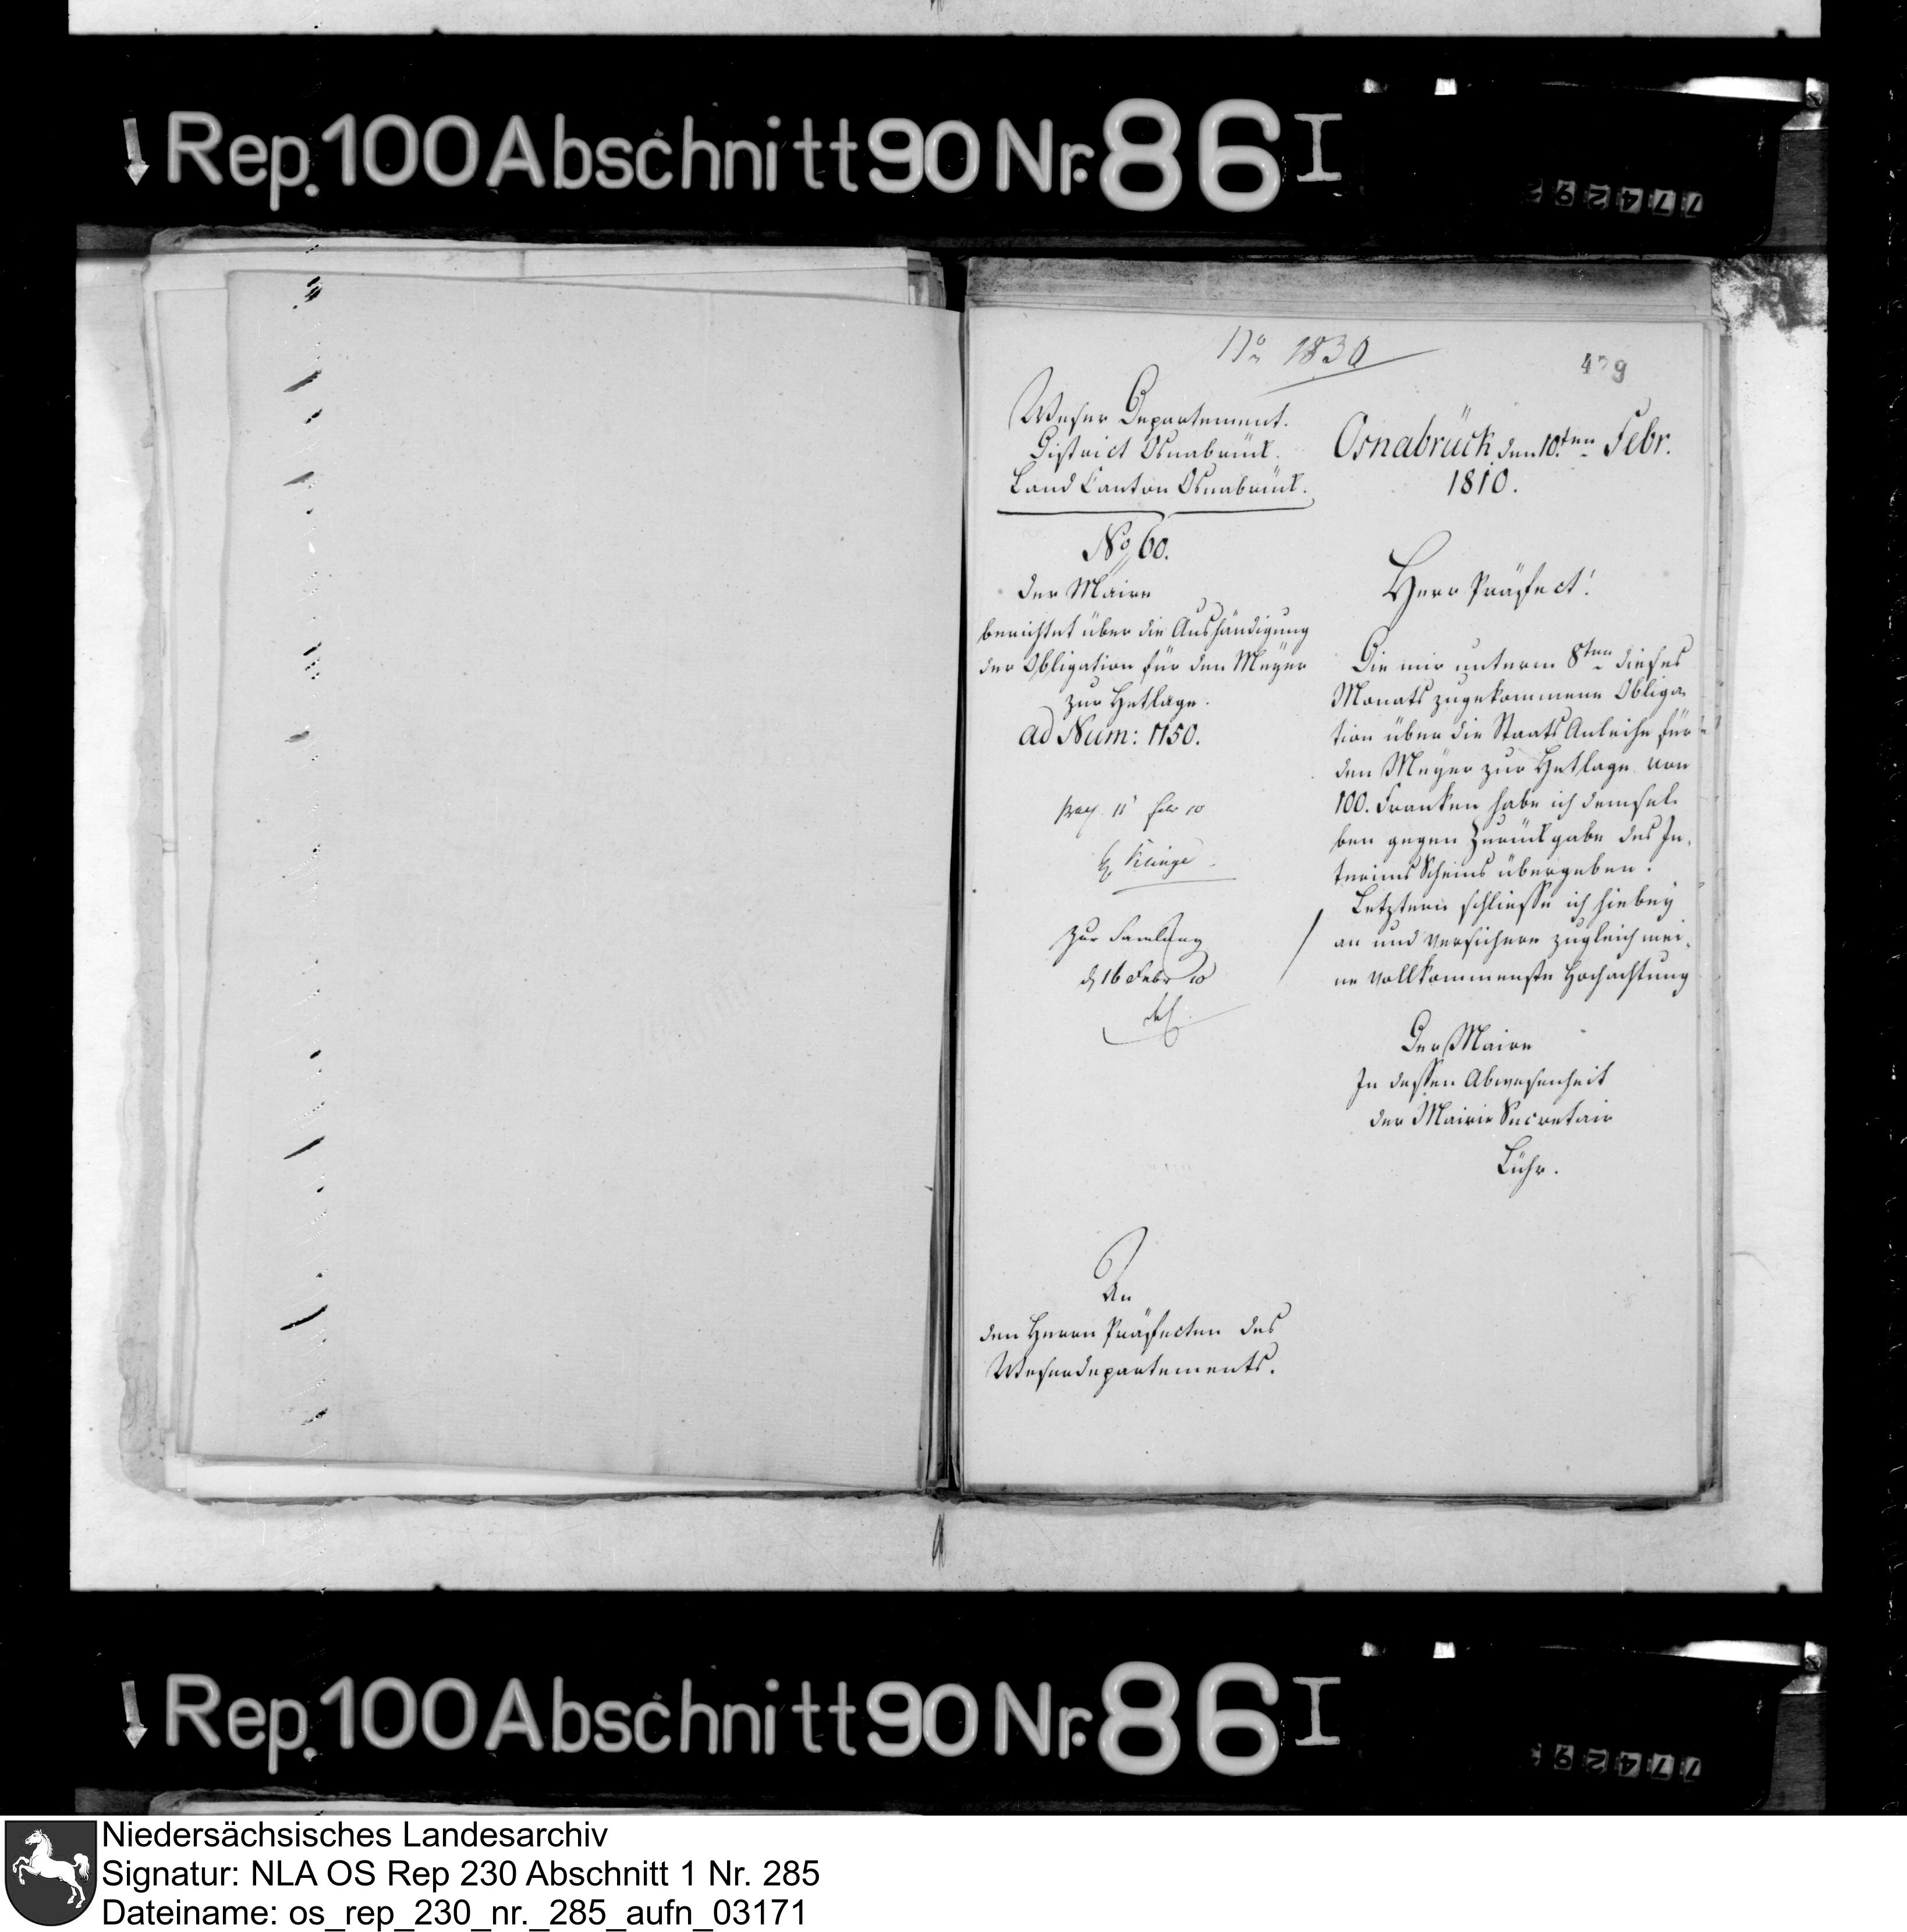 Rep. 100 Abschnitt 90 Nr. 86 I
No 1830
479
Weser Departement.
District Osnabrück.
Land Canton Osnabrück.
No 60.
Der Maire
berichtet über die Aushändigung
der Obligation für den Meyer
zur Hetlage.
ad Num: 1150.
11 Febr 10
zur Samlung
d 16 Febr 10
An
den Herrn Präfecten des
Weserdepartements.
Osnabrück den 10ten Febr.
1810.
Herr Präfect!
Die mir unterm 8ten dieses
Monats zugekommene Obliga
tion über die Staats Anleihe für
den Meyer zur Hetlage von
100. Franken habe ich demsel
ben gegen Zurückgabe des In
terims Scheins übergeben.
Letztern schliesse ich hiebey
an und versichere zugleich mei
ne vollkommenste Hochachtung
Der Maire
In dessen Abwesenheit
der Mairie Secretair
Lühr.
Rep. 100 Abschnitt 90 Nr. 86 I
Niedersächsisches Landesarchiv
Signatur: NLA OS Rep 230 Abschnitt 1 Nr. 285
Dateiname: os_rep_230_nr._285_aufn_03171